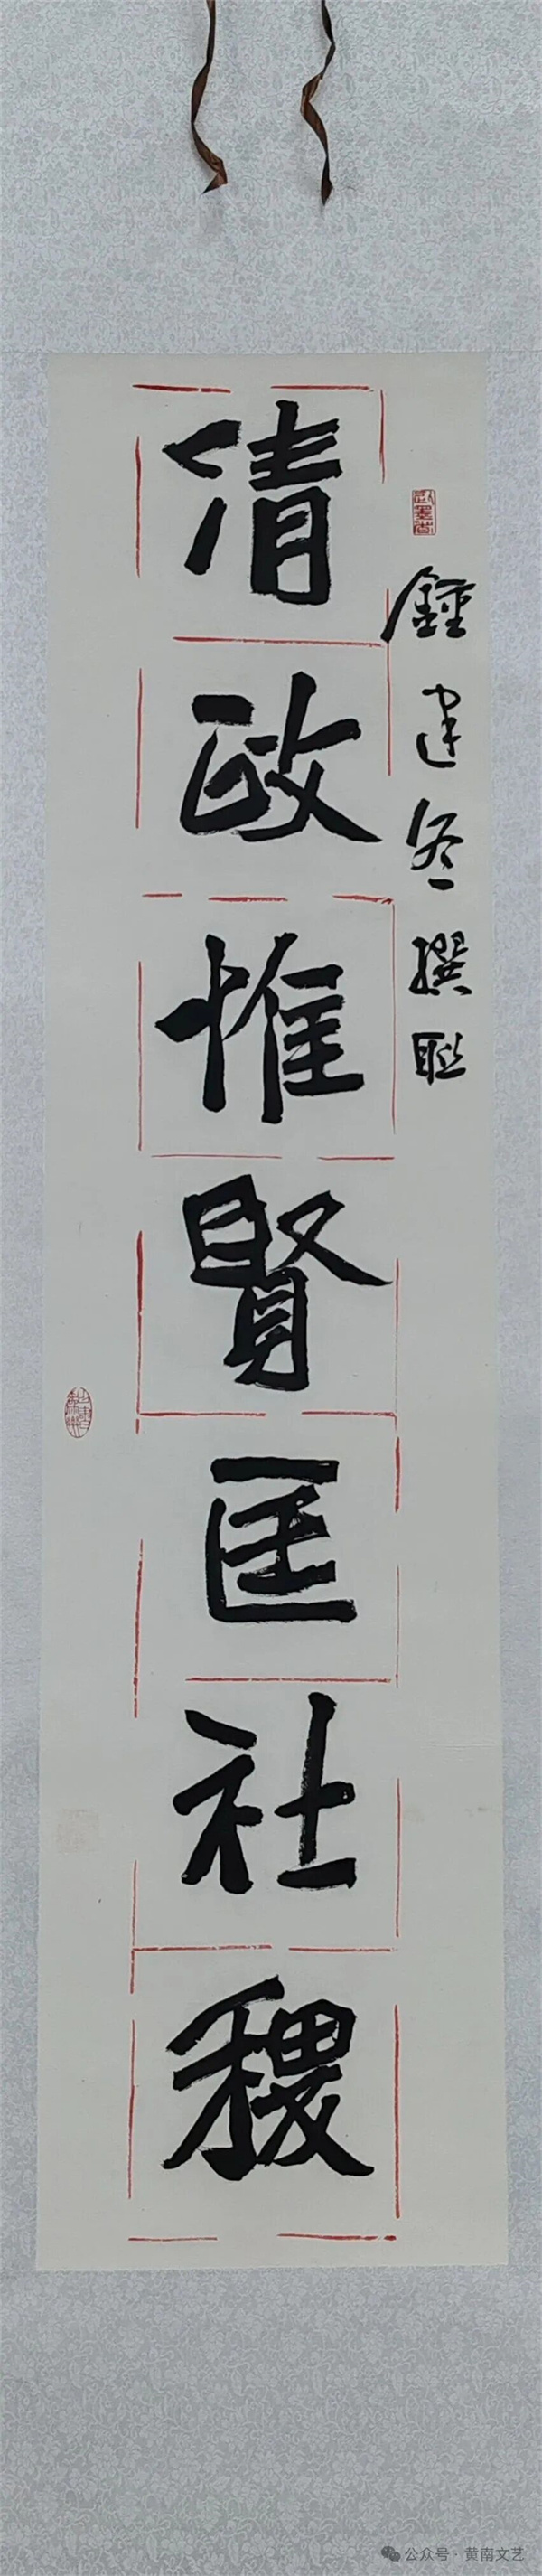 鍾建冬撰联
清政惟賢匡社稷
公众号·黄南文艺